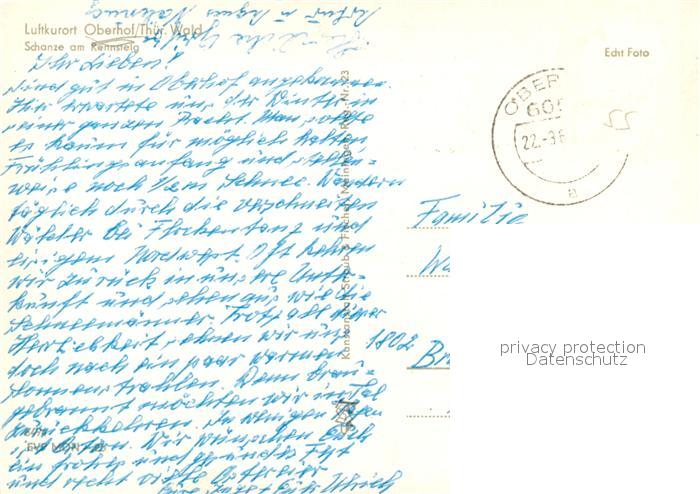 Luftkurort Oberhof/Thür. Wald
Schanze am Rennsteig
Echt Foto
Ihr Lieben!
Sind gut in Oberhof angekommen.
Hier erwartete uns der Winter in
seiner ganzen Pracht. Man sollte
es kaum für möglich halten,
Frühlingsanfang und stellen-
weise noch 1 m Schnee. Wandern
täglich durch die verschneiten
Wälder bei Flockentanz und
eisigem Nordwest. Oft kehren
wir zurück in unsere Unter-
kunft und sehen aus wie die
Schneemänner. Trotz all dieser
Herrlichkeit sehnen wir uns
doch nach ein paar warmen
Sonnenstrahlen. Denn braun-
gebrannt möchten wir ins Tal
zurückkehren. In wenigen Tagen
ist Ostern. Wir wünschen Euch
ein frohes und gesundes Fest
und recht viele Ostereier
Konstanze Straub & Fischer, Meiningen
OBER
22.-3
a
55
Familie
1802
Br
privacy protection
Datenschutz